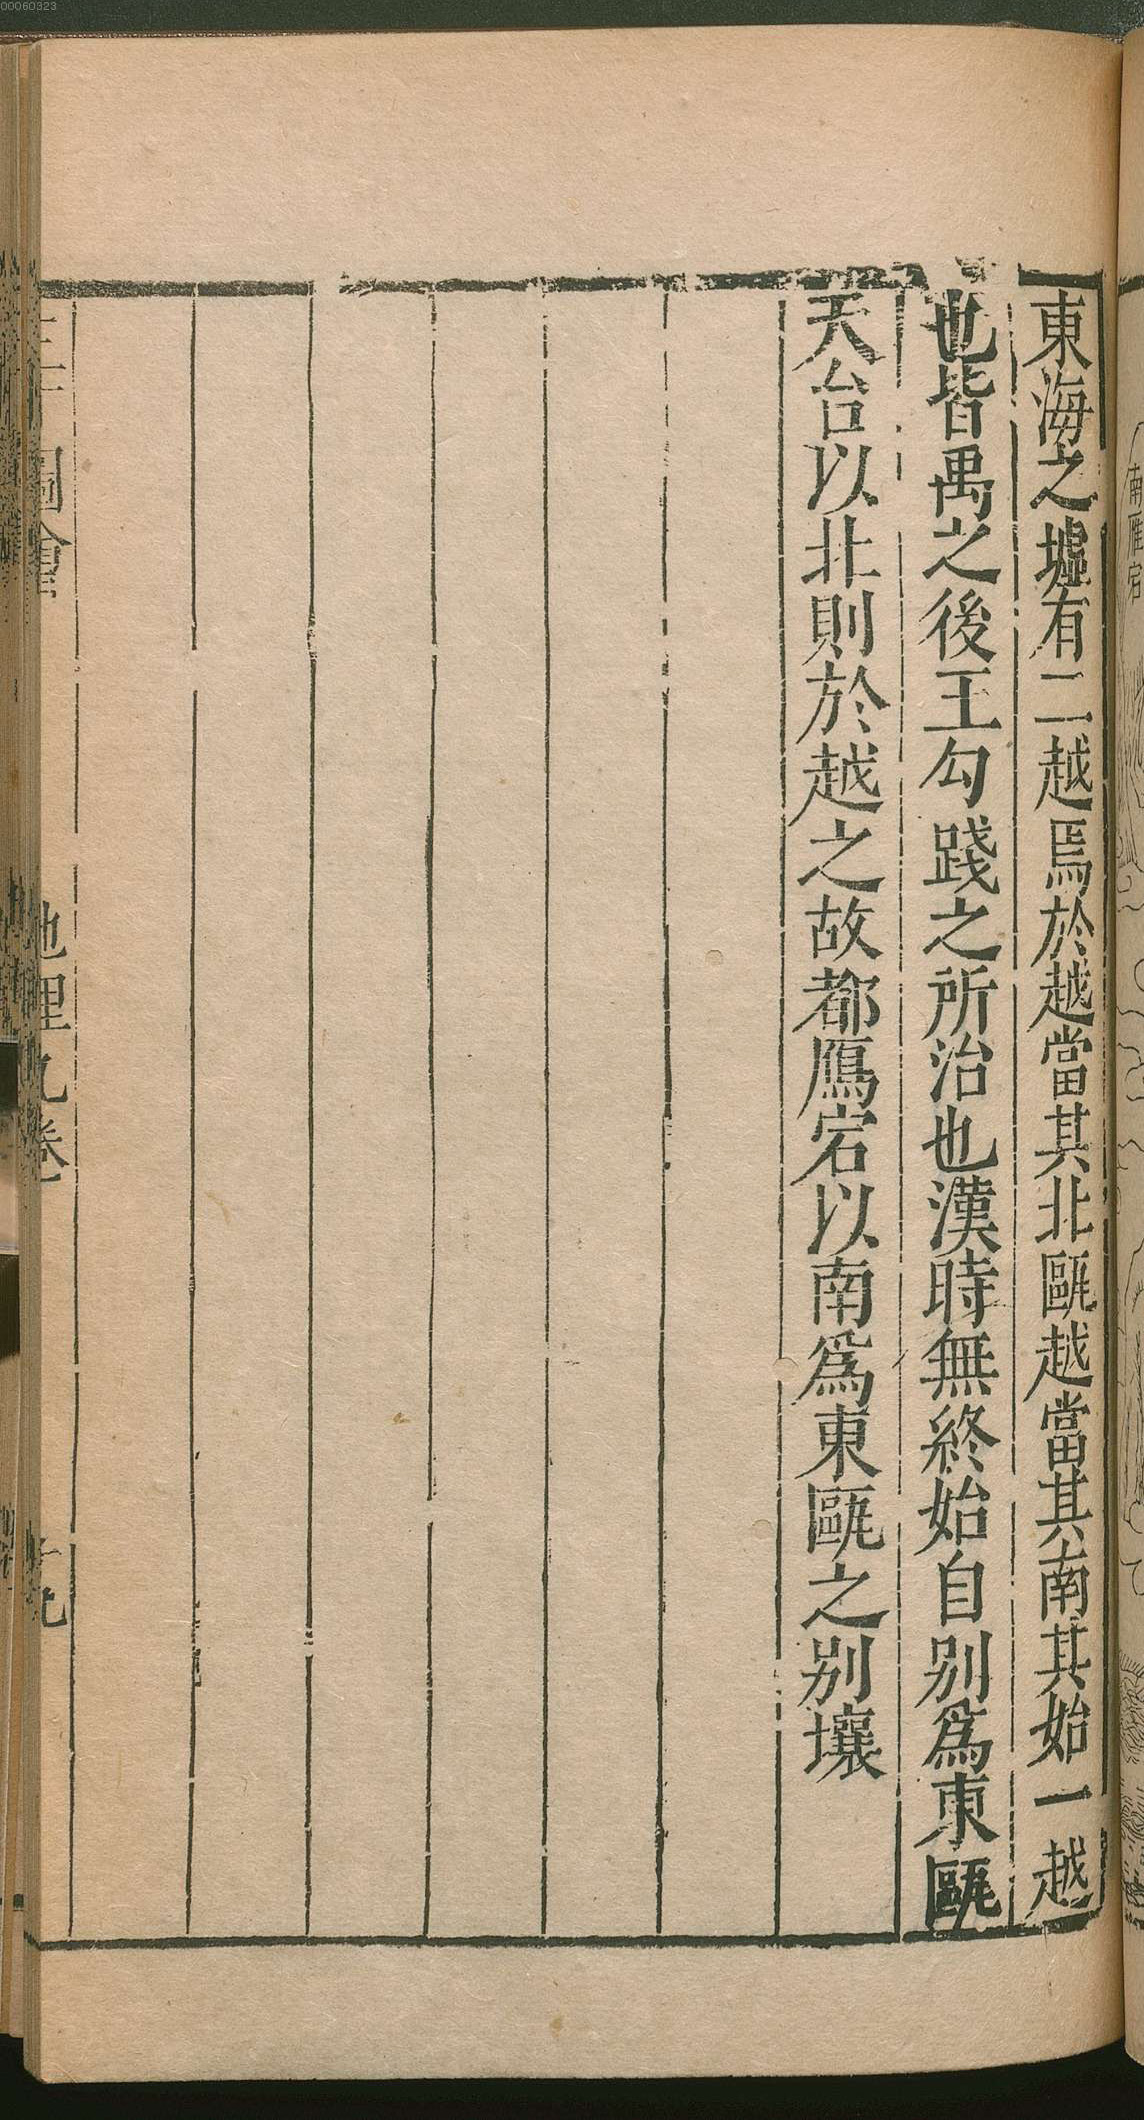 東海之墟有二越焉於越當其北甌越當其南其始一越
也皆禹之後王勾踐之所治也漢時無終始自別爲東甌
天台以北則於越之故都鴈宕以南爲東甌之別壤
圖會
地理九卷
南雁宕
00060323